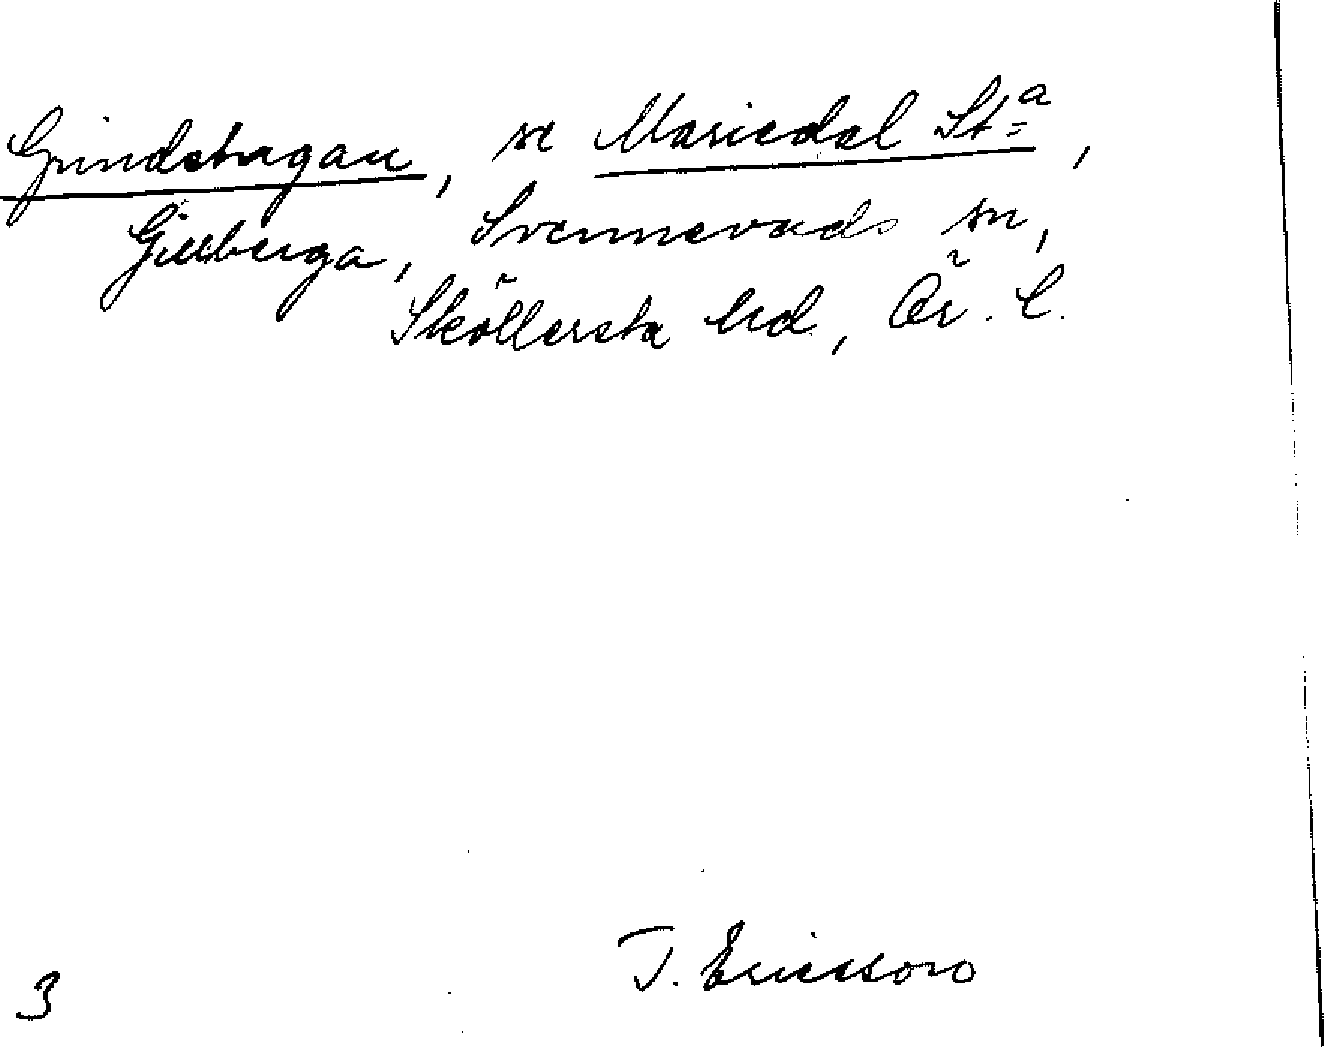 Grindstugan, se Mariedal St<sup>a</sup>,
Gillberga, Svennevads sn,
Sköllersta hd, Ör. l.
T. Ericsson
3